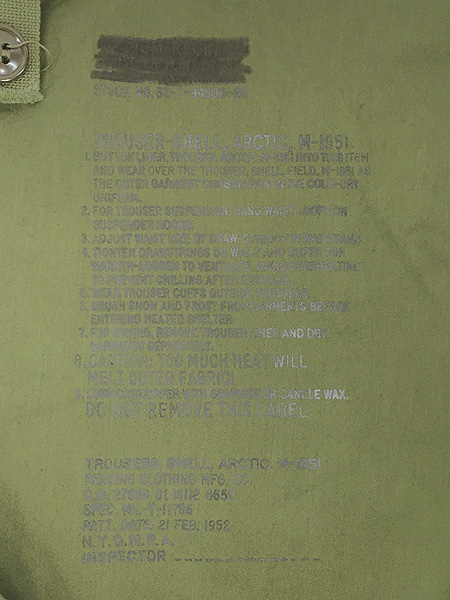 STOCK NO.
TROUSER-SHELL, ARCTIC, M-1951.
1. BUTTON LINER, TROUSER, ARCTIC, M-1951 INTO THIS ITEM
AND WEAR OVER THE TROUSER, SHELL, FIELD, M-1951 AS
THE OUTER GARMENT COLD-DRY
UNIFORM.
2. FOR TROUSER SUSPENSION, WAIST ON
SUSPENDER HOOKS.
3. ADJUST WAIST SIZE BY
4. TIGHTEN DRAWSTRINGS ON WAIST AND CUFFS FOR
WARMTH-LOOSEN TO VENTILATE. AVOID
TO PREVENT CHILLING AFTER
5. WEAR TROUSER CUFFS OUTSIDE
6. BRUSH SNOW AND FROST FROM GARMENTS BEFORE
ENTERING HEATED SHELTER.
7. FOR DRYING, REMOVE TROUSER LINER AND DRY
GARMENTS SEPARATELY.
8. CAUTION: TOO MUCH HEAT WILL
MELT OUTER FABRIC!
9. LUBRICATE ZIPPER WITH GRAPHITE OR CANDLE WAX.
DO NOT REMOVE THIS LABEL
TROUSERS, SHELL, ARCTIC, M-1951
CLOTHING MFG. CO.
SPEC. MIL-T-11756
PATT. DATE. 21 FEB. 1952
N.Y.Q.M.P.A.
INSPECTOR